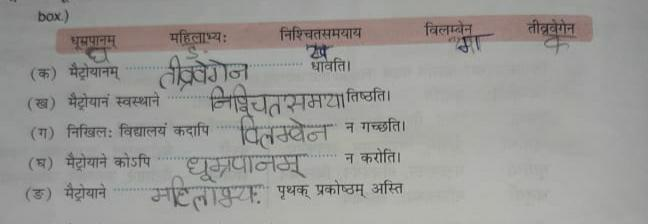 box.)
धूम्रपानम् महिलाभ्यः निश्चितसमयाय विलम्बेन तीव्रवेगेन
घ ङ ख ग क
(क) मैट्रोयानम् तीव्रवेगेन धावति।
(ख) मैट्रोयानं स्वस्थाने निश्चितसमया तिष्ठति।
(ग) निखिलः विद्यालयं कदापि विलम्बेन न गच्छति।
(घ) मैट्रोयाने कोऽपि धूम्रपानम् न करोति।
(ङ) मैट्रोयाने महिलाभ्यः पृथक् प्रकोष्ठम् अस्ति